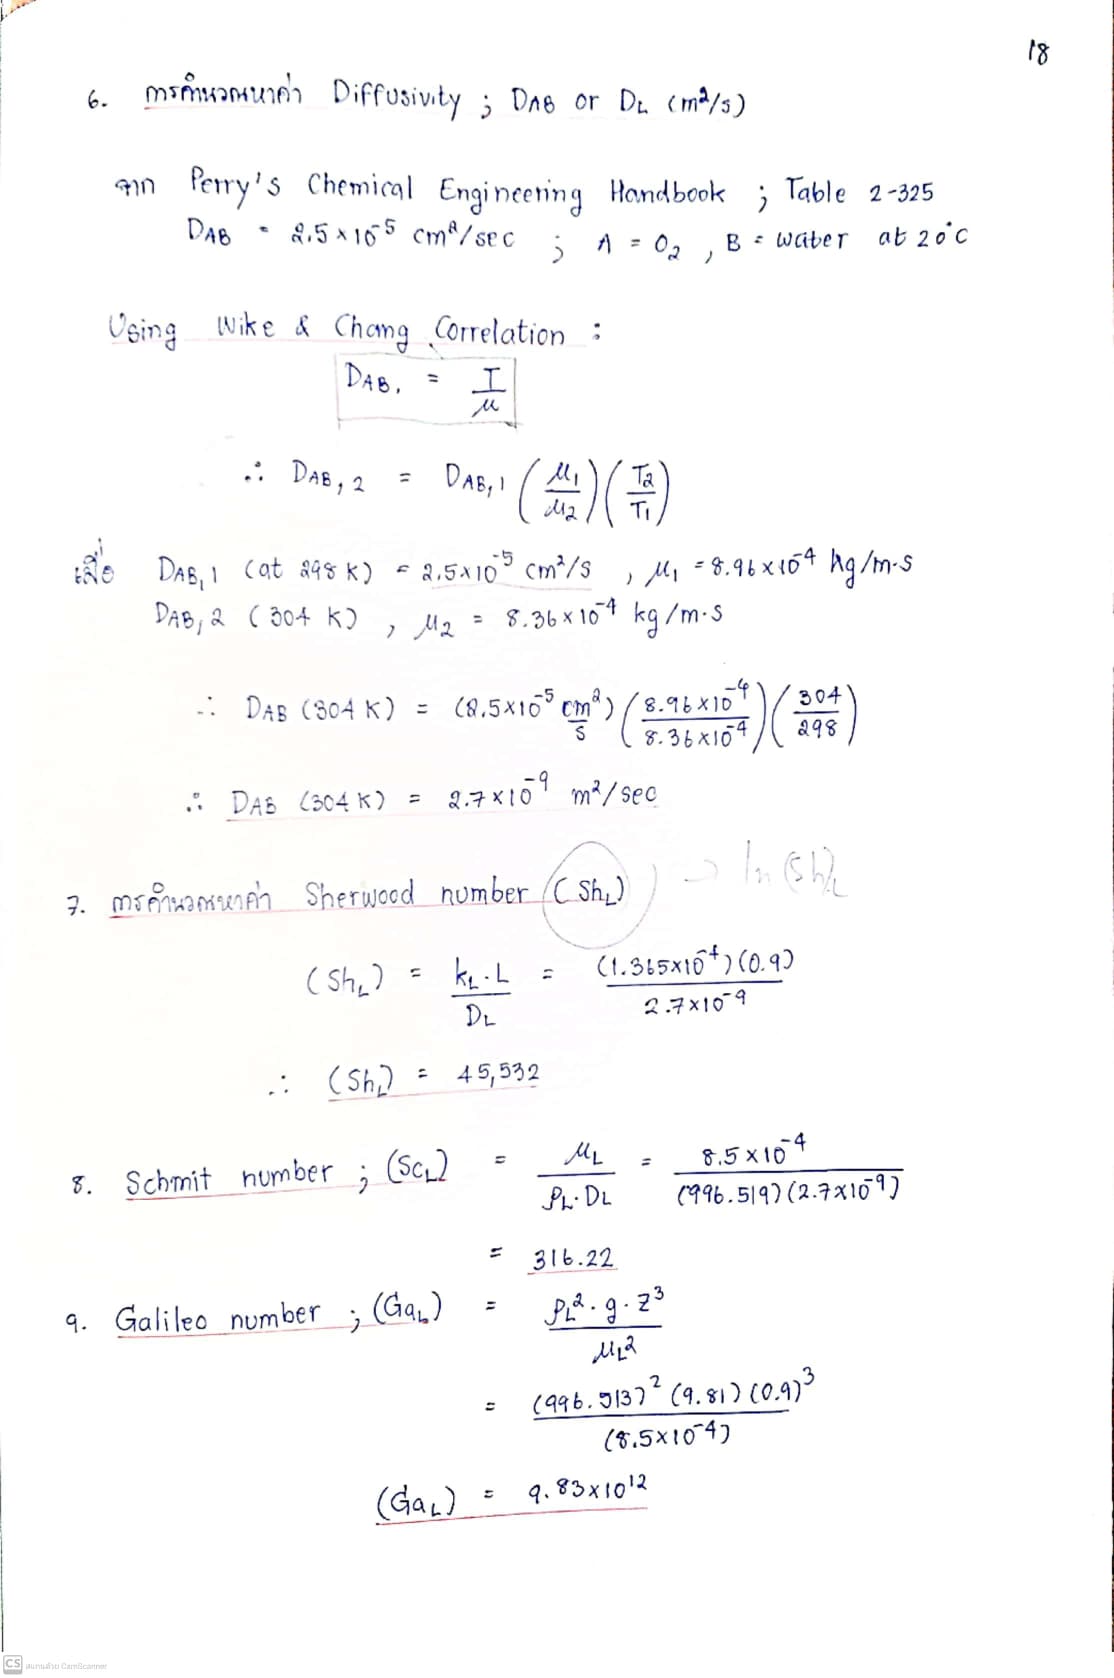 18
6. การคำนวณหาค่า Diffusivity ; DAB or DL (m²/s)
จาก Perry's Chemical Engineering Handbook ; Table 2-325
DAB = 2.5 x 10⁻⁵ cm²/sec ; A = O₂ , B = water at 20°C
Using Wike & Chang Correlation :
DAB, = T/μ
∴ DAB,2 = DAB,1 (μ₁/μ₂)(T₂/T₁)
เมื่อ DAB,1 (at 298 K) = 2.5x10⁻⁵ cm²/s , μ₁ = 8.96x10⁻⁴ kg/m·s
DAB,2 (304 K) , μ₂ = 8.36x10⁻⁴ kg/m·s
∴ DAB (304 K) = (2.5x10⁻⁵ cm²/s)(8.96x10⁻⁴/8.36x10⁻⁴)(304/298)
∴ DAB (304 K) = 2.7x10⁻⁹ m²/sec
7. การคำนวณหาค่า Sherwood number (ShL) → ln(Sh)L
(ShL) = kL·L/DL = (1.365x10⁻⁴)(0.9)/2.7x10⁻⁹
∴ (ShL) = 45,532
8. Schmit number ; (ScL) = μL/ρL·DL = 8.5x10⁻⁴/(996.519)(2.7x10⁻⁹)
= 316.22
9. Galileo number ; (GaL) = ρL²·g·Z³/μL²
= (996.513)²(9.81)(0.9)³/(8.5x10⁻⁴)
(GaL) = 9.83x10¹²
CS สแกนด้วย CamScanner